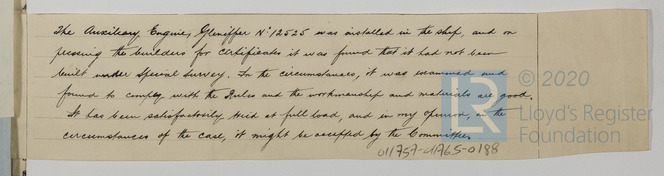 The Auxiliary Engine, Gleniffer No 12525 was installed in the ship, and on
pressing the builders for Certificates it was found that it had not been
built under Special Survey. In the circumstances, it was examined and
found to comply with the Rules and the workmanship and materials are good.
It has been satisfactorily tried at full load, and in my opinion, in the
circumstances of the case, it might be accepted by the Committee.
011757-011765-0188
© 2020
LR
Lloyd's Register
Foundation